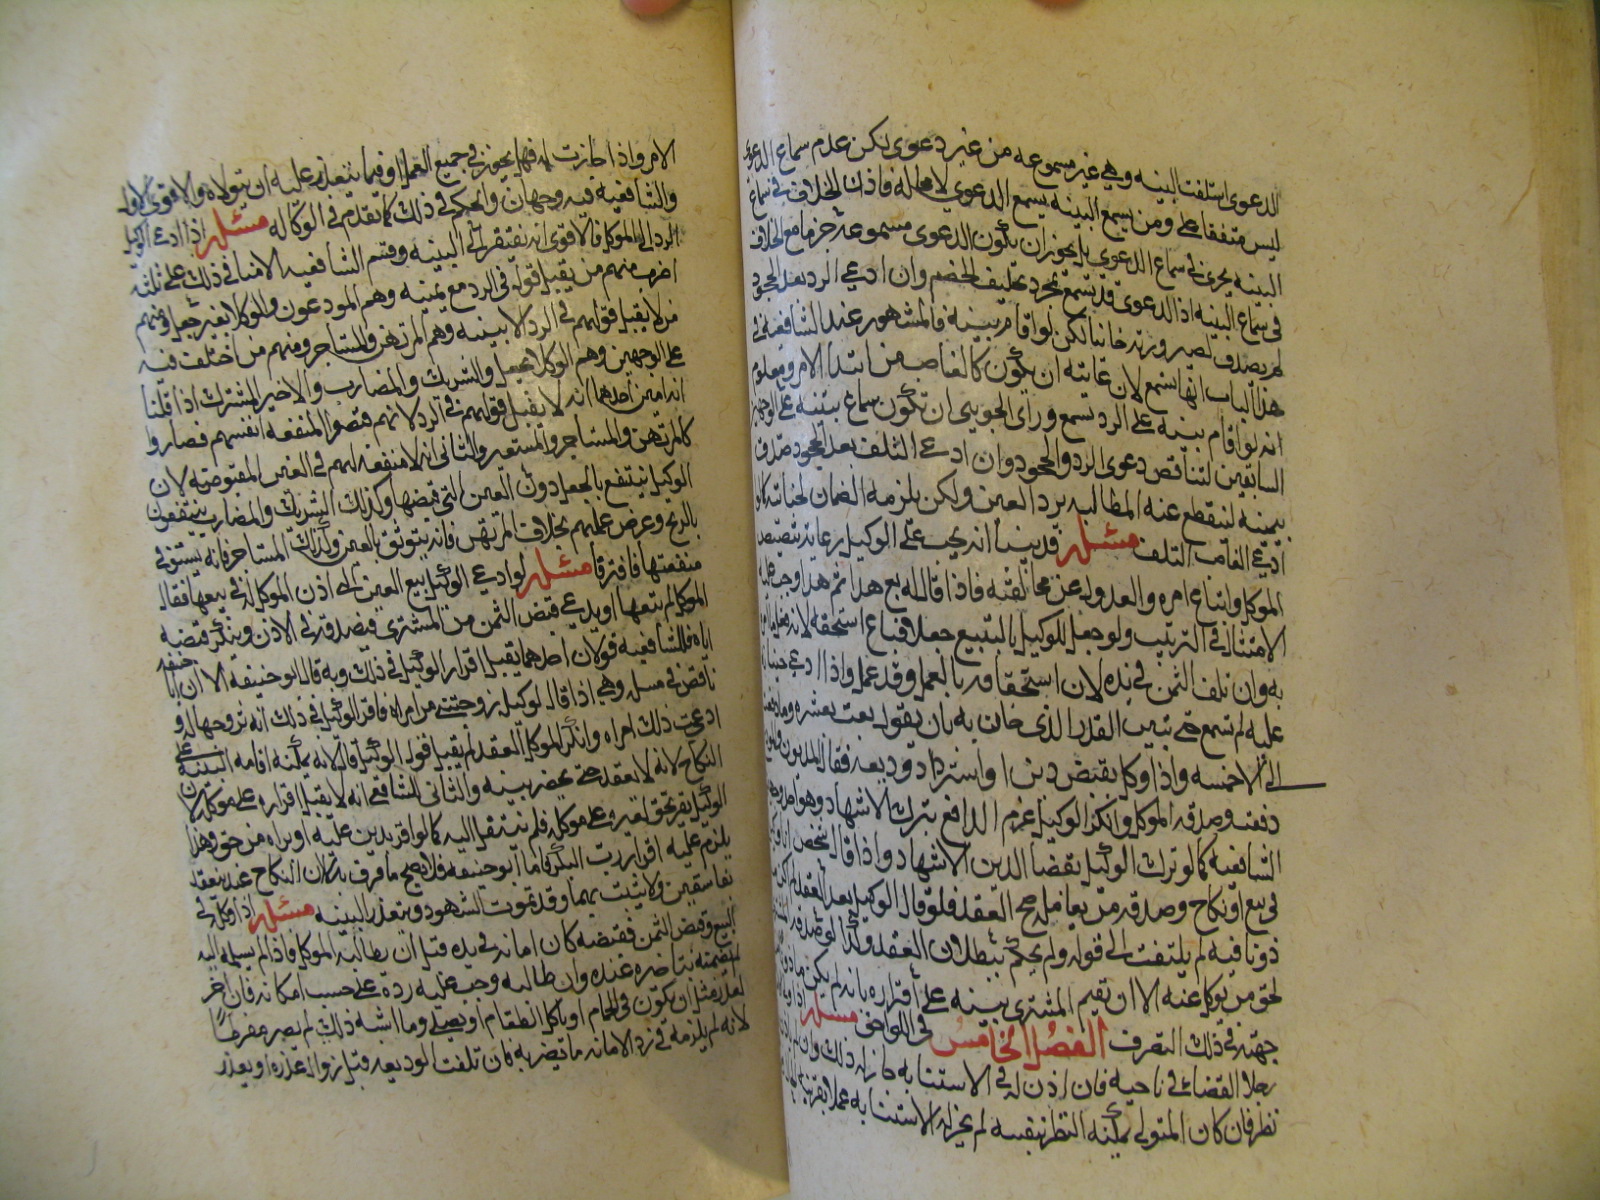 الدعوى استلفت البينه وهي غير مسموعه من غير دعوى لكن عدم سماع الدعوى
ليس متفقا على ومن يسمع البينه يسمع الدعوى لا محاله فاذن الخلاف في سماع
البينه يجرى في سماع الدعوى بل يجوز ان يكون الدعوى مسموعة جزما مع الخلاف
في سماع البينه اذ الدعوى قد يسمع بمجرد تحليف الخصم وان ادعى الرد بعد الجحود
لم يصدق لصيرورته خائنا لكن لو اقام بينة فالمشهور عند الشافعية في
هذا الباب انها تسمع لان غايته ان يكون كالغاصب من ابتداء الامر ومعلوم
انه لو اقام بينه على الرد تسمع وراى الجويني ان تكون سماع بينته على الوجهين
السابقين لتناقض دعوى الرد والجحود وان ادعى التلف بعد الجحود صدق
بيمينه لتنقطع عنه المطالبه برد العين ولكن يلزمه الضمان لخيانته كما لو
ادعى الغاصب التلف مسئله قد بينا انه يجب على الوكيل رعاية تنصيص
الموكل واتباع امره والعدول عن مخالفته فاذا قال له بع هذا ثم هذا وجب عليه
الامتثال في الترتيب ولو جعل للوكيل بالبيع جعلا فباع استحقه
به وان تلف الثمن في يده لان استحقاقه بالعمل وقد عمل واذا ادعى خيانة
عليه لم تسمع حتى تبين القدر الذي خان به بان يقول بعت بعشره وما دفعت
الى الا خمسه واذا وكل بقبض دين او استرداد وديعه فقال المديون والمودع
دفعت وصدقه الموكل وانكر الوكيل غرم الدافع بترك الاشهاد وهو احد وجهي
الشافعية كما لو ترك الوكيل بقضاء الدين الاشهاد واذا قال شخص انا وكيل
في بيع او نكاح وصدقه من يعامله صح العقد فلو قال الوكيل بعد العقد لم اكن
ذونا فيه لم يلتفت الى قوله ولم يحكم ببطلان العقد وكذا لو صدقه المشتري
لحق من يوكل عنه الا ان تقيم المشترى بينه على اقراره بانه لم يكن ماذونا
جهته في ذلك التصرف الفصل الخامس في اللواحق مسئله
رجلا القضاء في ناحيه فان اذن له في الاستنابه جاز له ذلك وان لم
نظر فان كان المتولى يمكنه النظر بنفسه لم يجز له الاستنابه
الامر واذا جازت له فهل يجوز في جميع العمل او فيما يتعذر عليه ان يتولاه والاقوى الاول
وللشافعية فيه وجهان والحكم في ذلك كما تقدم في الوكاله مسئله اذا ادعى الوكيل
الرد الى الموكل فالاقوى انه يفتقر الى البينه وقسم الشافعيه الامناء في ذلك على ثلثة
اضرب منهم من يقبل قوله في الرد مع يمينه وهم المودعون والوكلاء بغير جعل ومنهم
من لا يقبل قولهم في الرد الا ببينه وهم المرتهن والمستاجر ومنهم من اختلف فيه
على الوجهين وهم الوكلاء بجعل والشريك والمضارب والاجير المشترك اذا قلنا
انه امين احدهما انه لا يقبل قولهم في الرد لانهم قبضوا لمنفعه انفسهم فصاروا
كالمرتهن والمستاجر والمستعير والثاني انه لا منفعه لهم في العين المقبوضة لان
الوكيل ينتفع بالجعل دون العين التي قبضها وكذلك الشريك والمضارب ينتفعون
بالربح وعوض عملهم بخلاف المرتهن فانه يتوثق بالعين وكذلك المستاجر فانه يستوفي
منفعتها فافترقا مسئله لو ادعى الوكيل بيع العين التي اذن الموكل له في بيعها فقال
الموكل لم تبعها او يدعى قبض الثمن من المشترى فيصدقه في الاذن وينكر قبضه
اياه فللشافعية قولان احدهما يقبل اقرار الوكيل في ذلك وبه قال ابو حنيفة الا ان ابا حنيفه
ناقض في مسئله وهي اذا قال لوكيل زوجتني من امراة فاقر الوكيل في ذلك انه تزوجها له و
ادعت ذلك امراه وانكر الموكل العقد لم يقبل قول الوكيل قال لانه يمكنه اقامه البينه على
النكاح لانه لا يعقد حتى يحضر بينه والثاني للشافعي انه لا يقبل اقراره على موكله لان
الوكيل يقر بحق لغيره على موكله فلم ينتقل اليه كما لو اقر بدين عليه او براه من حق وهذا
يلزم عليه اقرار رب البكر فاما ابو حنيفه فلا يصح ما فرق به لان النكاح عنده ينعقد
بفاسقين ولا يثبت بهما وقد يموت الشهود ويتعذر البينه مسئله اذا وكله في
البيع وقبض الثمن فقبضه كان امانه في يده قبل ان يطالبه الموكل فاذا لم يسلمه اليه
لم يضمنه بتاخره عنده وان طالبه وجب عليه رده على حسب امكانه فان اخر
لعذر مثل ان يكون في الحمام او ياكل الطعام او يصلي وما اشبه ذلك لم يصر مفرطا
لانه لم يلزمه في رد الامانه ما يضر به فان تلفت الوديعه قبل زوال عذره او بعذر